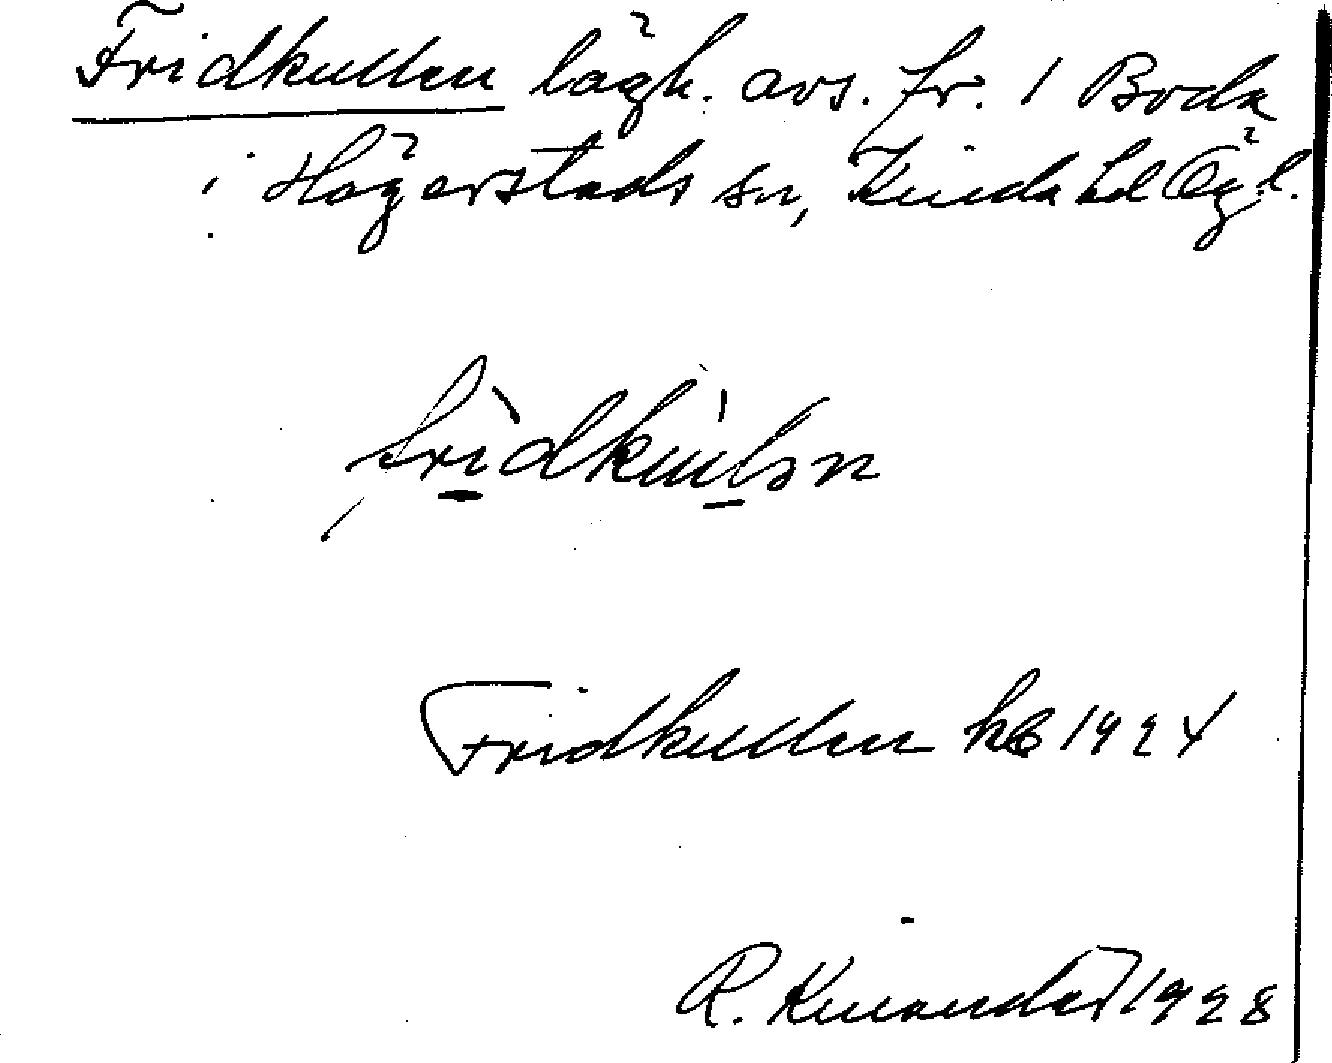 Fridkullen lägh. avs. fr. 1 Boda
i Hägerstads sn, Kinda hd Ögl.
fridkulən
Fridkullen kb 1924
R. Kinander 1928